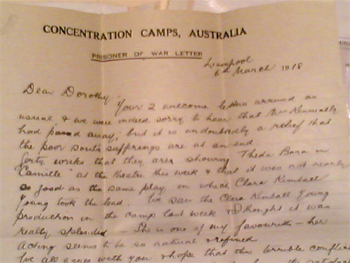 CONCENTRATION CAMPS, AUSTRALIA
PRISONER OF WAR LETTER
Liverpool
6th March 1918
Dear Dorothy:-
Your 2 welcome letters arrived as
usual & we were indeed sorry to hear that
had passed away, but it is undoubtedly a relief that
the poor souls sufferings are at an end
works that they are showing Theda Bara in
"Camille" at the theatre this week & that it was not nearly
so good as the same play, in which Clara Kimball
Young took the lead. We saw the Clara Kimball Young
production in the camp last week & thought it was
really splendid. She is one of my favourites - her
acting seems to be so natural & refined
We all agree with you & hope that this terrible conflict